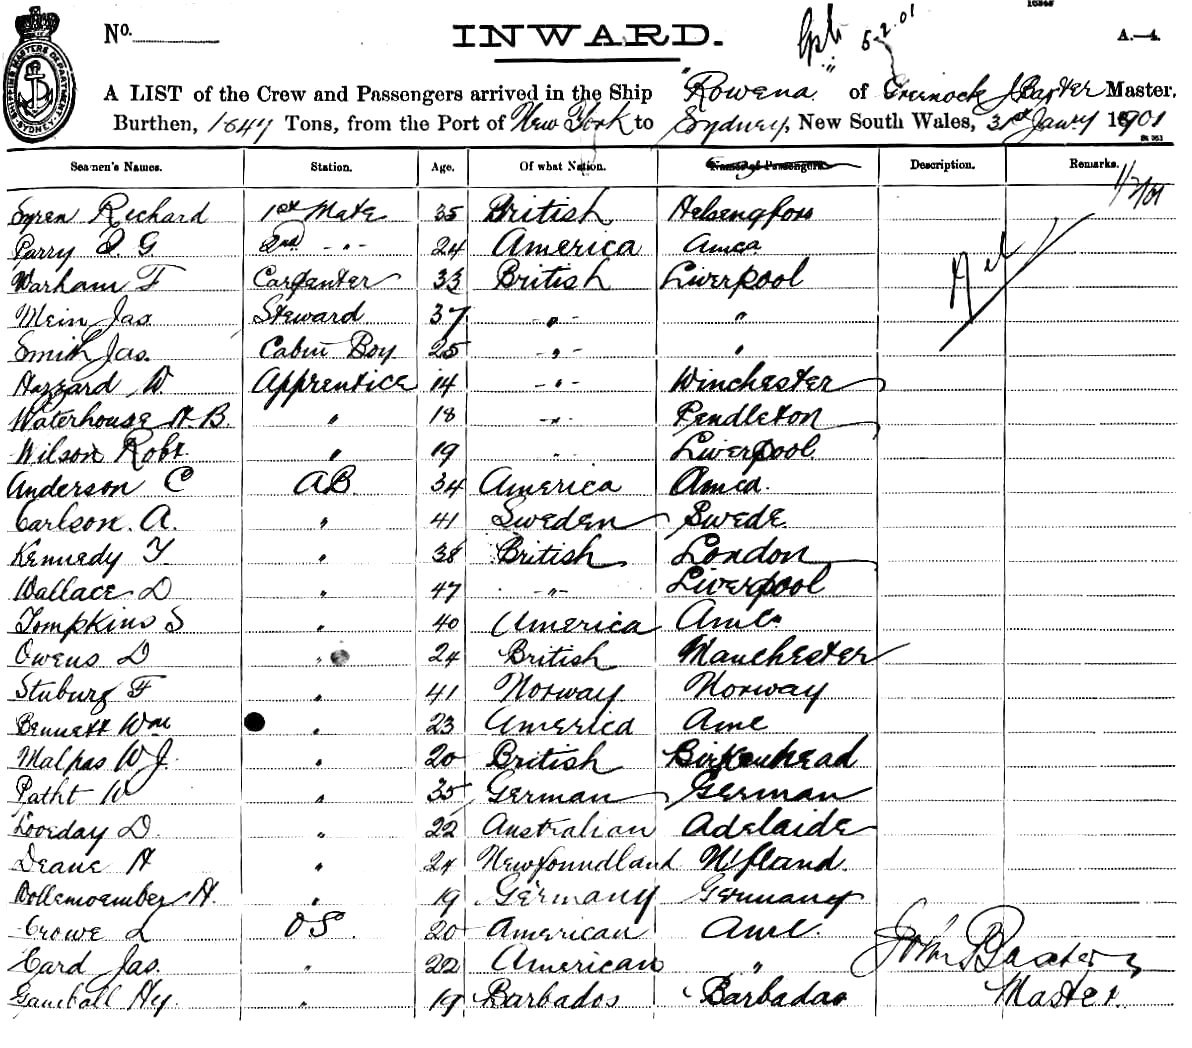 No. INWARD. 5-2-01 A.—4.
A LIST of the Crew and Passengers arrived in the Ship "Rowena of Greenock J Baxter Master,
Burthen, 1647 Tons, from the Port of New York to Sydney, New South Wales, 31st Jany 1901
SHIPPING MASTERS DEPARTMENT SYDNEY
Seamen's Names. Station. Age. Of what Nation. Names of Passengers. Description. Remarks.
1/2/01
Syren Richard 1st Mate 35 British Helsengfors
Parry G 2nd -"- 24 America Amca
Warham F Carpenter 33 British Liverpool
Mein Jas Steward 37 -"- "
Smith Jas. Cabin Boy 25 -"- "
Hazzard W Apprentice 14 -"- Winchester
Waterhouse H.B. " 18 -"- Pendleton
Wilson Robt. " 19 " Liverpool
Anderson C AB. 34 America Amca.
Carlson. A. " 41 Sweden Swede.
Kennedy T. " 38 British London
Wallace D " 47 -"- Liverpool
Tompkins S " 40 America Amc.
Owens D " 24 British Manchester
Stuburg F " 41 Norway Norway
Bennett Wm " 23 America Ame
Malpas W J. " 20 British Birkenhead
Patht W " 35 German German
Loveday D. " 22 Australian Adelaide
Deane H " 24 Newfoundland N'fland.
H. " 19 Germany Germany
Crowe L OS. 20 American Ame.
Card Jas. " 22 American " John Baxter
Hy. " 19 Barbados Barbados Master.